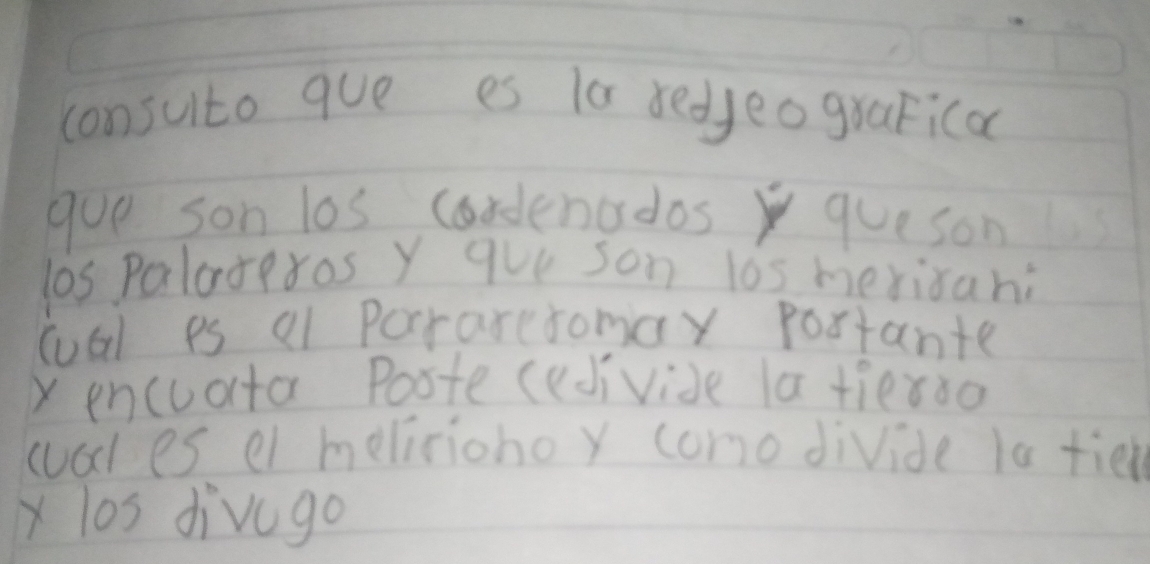 consulto que es la redgeografica
que son los cordenados y que son
los Palareros y que son los merirani
cual es el Parareromay Portante
y encuata Poste cedivide la tierra
cual es el meliriono y como divide la tier
y los divugo